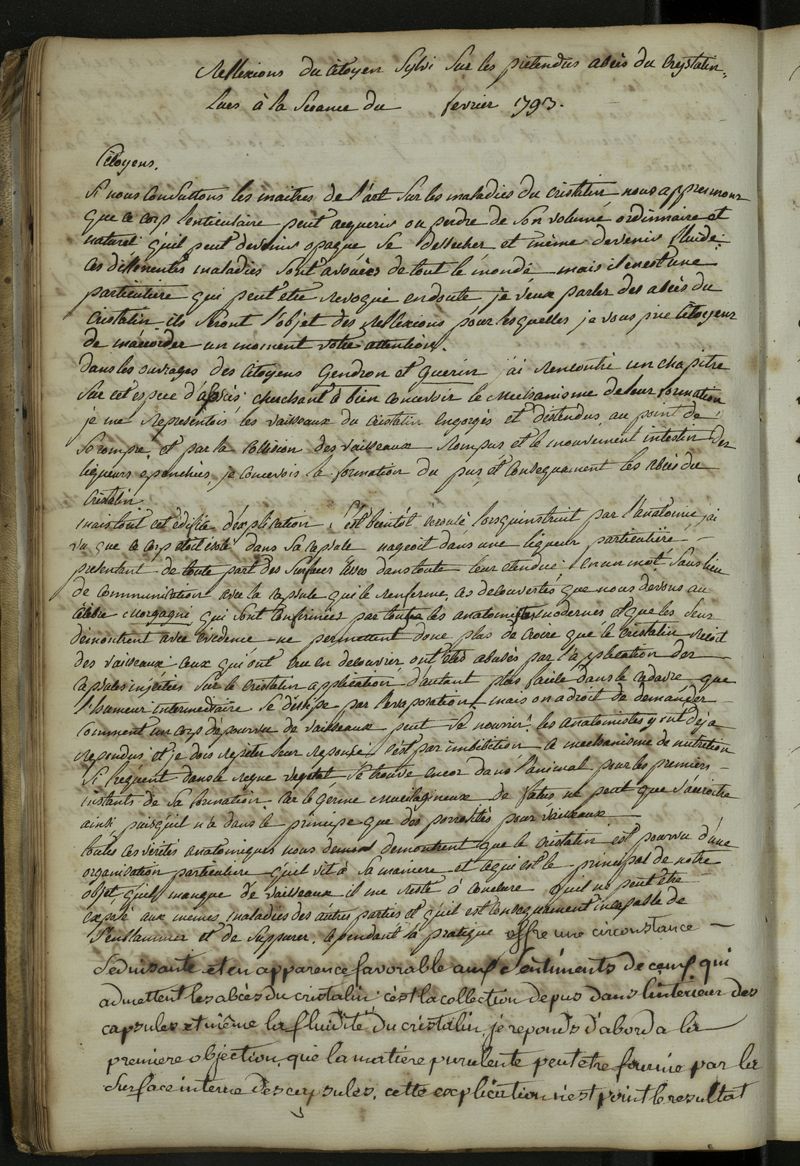 Reflexions du Citoyen Sylvi sur les pretendus abcès du Crystalin,
Lues à la Séance du fevrier 1793.
Citoyens,
Si nous Consultons les maitres de l'art sur les maladies du cristalin nous apprenons
que ce corp lenticulaire peut acquerir ou perdre de son volume ordinnaire et
naturel qu'il peut devenir opaque se dessecher et même devenir fluide.
Ces differentes maladies sont avouées de tout le monde mais il en est une
particuliere qui peut etre revoqué en doute je veux parler des abcès du
Cristalin ils seront l'objet des Reflexions pour lesquelles je vous prie Citoyens
de m'accorder un moment votre attention.
Dans les ouvrages des Citoyens Gendron et Guerin j'ai rencontré un chapitre
sur cet espece d'abcès cherchant à bien concevoir le mechanisme de leur formation
je me representois les vaisseaux du Cristalin engorgés et distendus au point de
se rompre, et par la collision des vaisseaux rompus et le mouvement intestin des
liqueurs epanchées, je concevois la formation du pus et consequamment les abcès du
Cristalin
mais tout cet edifice d'explication s'est bientôt ecroulé lorsqu'instruit par l'anatomie j'ai
vu que ce corp dans sa capsule nageoit dans une liqueur particuliere
presentent de toute part des surfaces lisses dans toute leur etendue en un mot sans lieu
de communication avec la capsule qui le renferme, ces decouvertes que nous devons au
célèbre Morgagni qui sont confirmées par toute les anatomistes modernes et que les sens
demontrent avec evidence ne permettent donc plas de croire que le Cristalin reçoit
des vaisseaux ceux qui ont cru en decouvrir ont etés abusés par l'application des
capsules injectées sur le Cristalin application d'autant plus facile dans le cadavre que
l'humeur intermediaire se dissipe par l'evaporation, mais on a droit de demander
comment un corp dépourvu de vaisseaux peut se nourrir? les anatomistes y ont deja
repondus et je dois repeter leur reponse, c'est par imbibition ce mechanisme de nutrition
si frequent dans le regne végétal se trouve encor dans l'animal pour les premiers
instants de sa formation. Car le germe mucilagineux de fœtus ne peut que s'accroitre
ainsi puisqu'il n'a dans le principe que des porosités pour vaisseaux
toutes ces verités anatomiques nous demontrent que le Cristalin est pourvu d'une
organisation particuliere qu'il vit à sa maniere et ce qui est le principal de notre
objet qu'il manque de vaisseaux il me reste à conclure qu'il ne peut être
exposé aux memes maladies des autres parties et qu'il est consequament incapable de
s'enflammer et de suppurer. Cependant la pratique offre une circonstance
séduisante et en apparence favorable aux sentiments de ceux qui
admettent les abcès du cristalin: c'est la collection de pus dans l'interieur des
capsules et même la fluidité du cristalin, je reponds d'abord à la
premiere objection, que la matiere purulente peut etre fournie par la
surface interne des capsules, cette explication n'est point le resultat